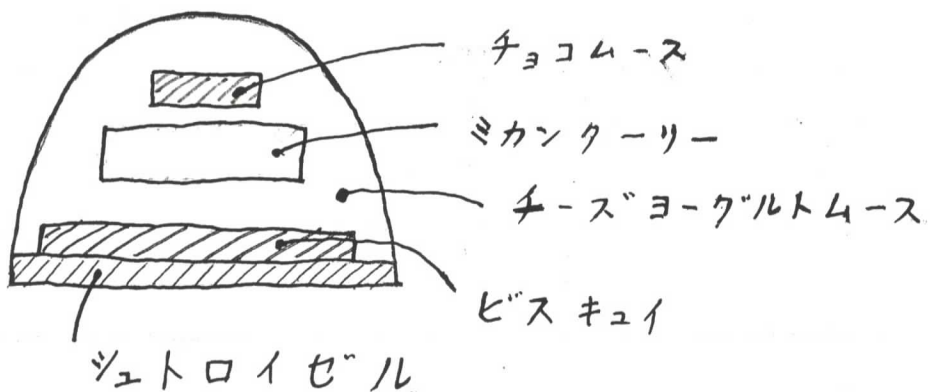 チョコムース
ミカンクーリー
チーズヨーグルトムース
ビスキュイ
シュトロイゼル